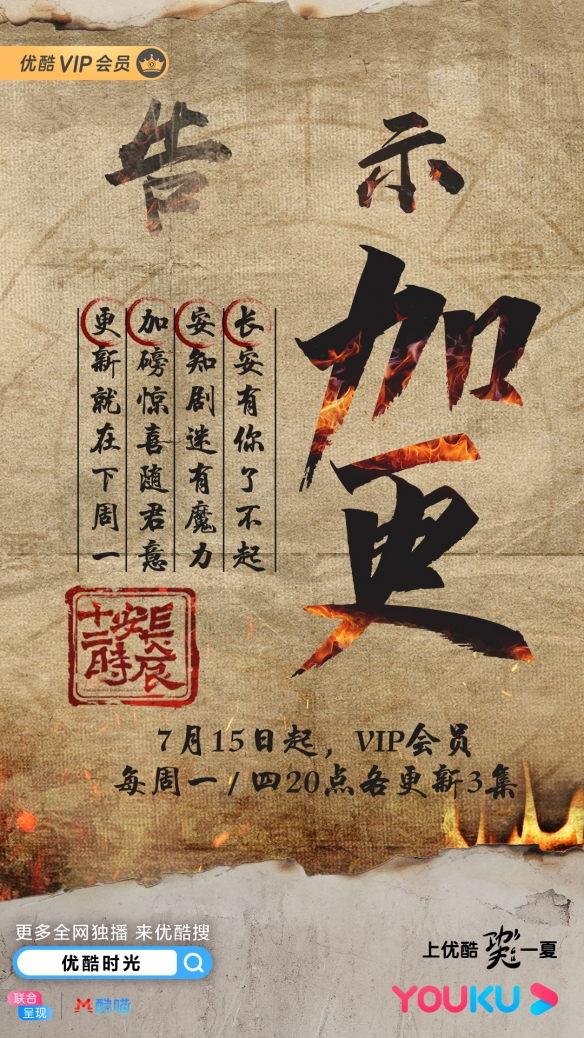 优酷VIP会员
告示
加更
长安有你了不起
安知剧迷有魔力
加磅惊喜随君意
更新就在下周一
長安
十二時辰
7月15日起，VIP会员
每周一/四20点各更新3集
更多全网独播 来优酷搜
优酷时光
联合呈现
酷喵
上优酷 一夏
YOUKU